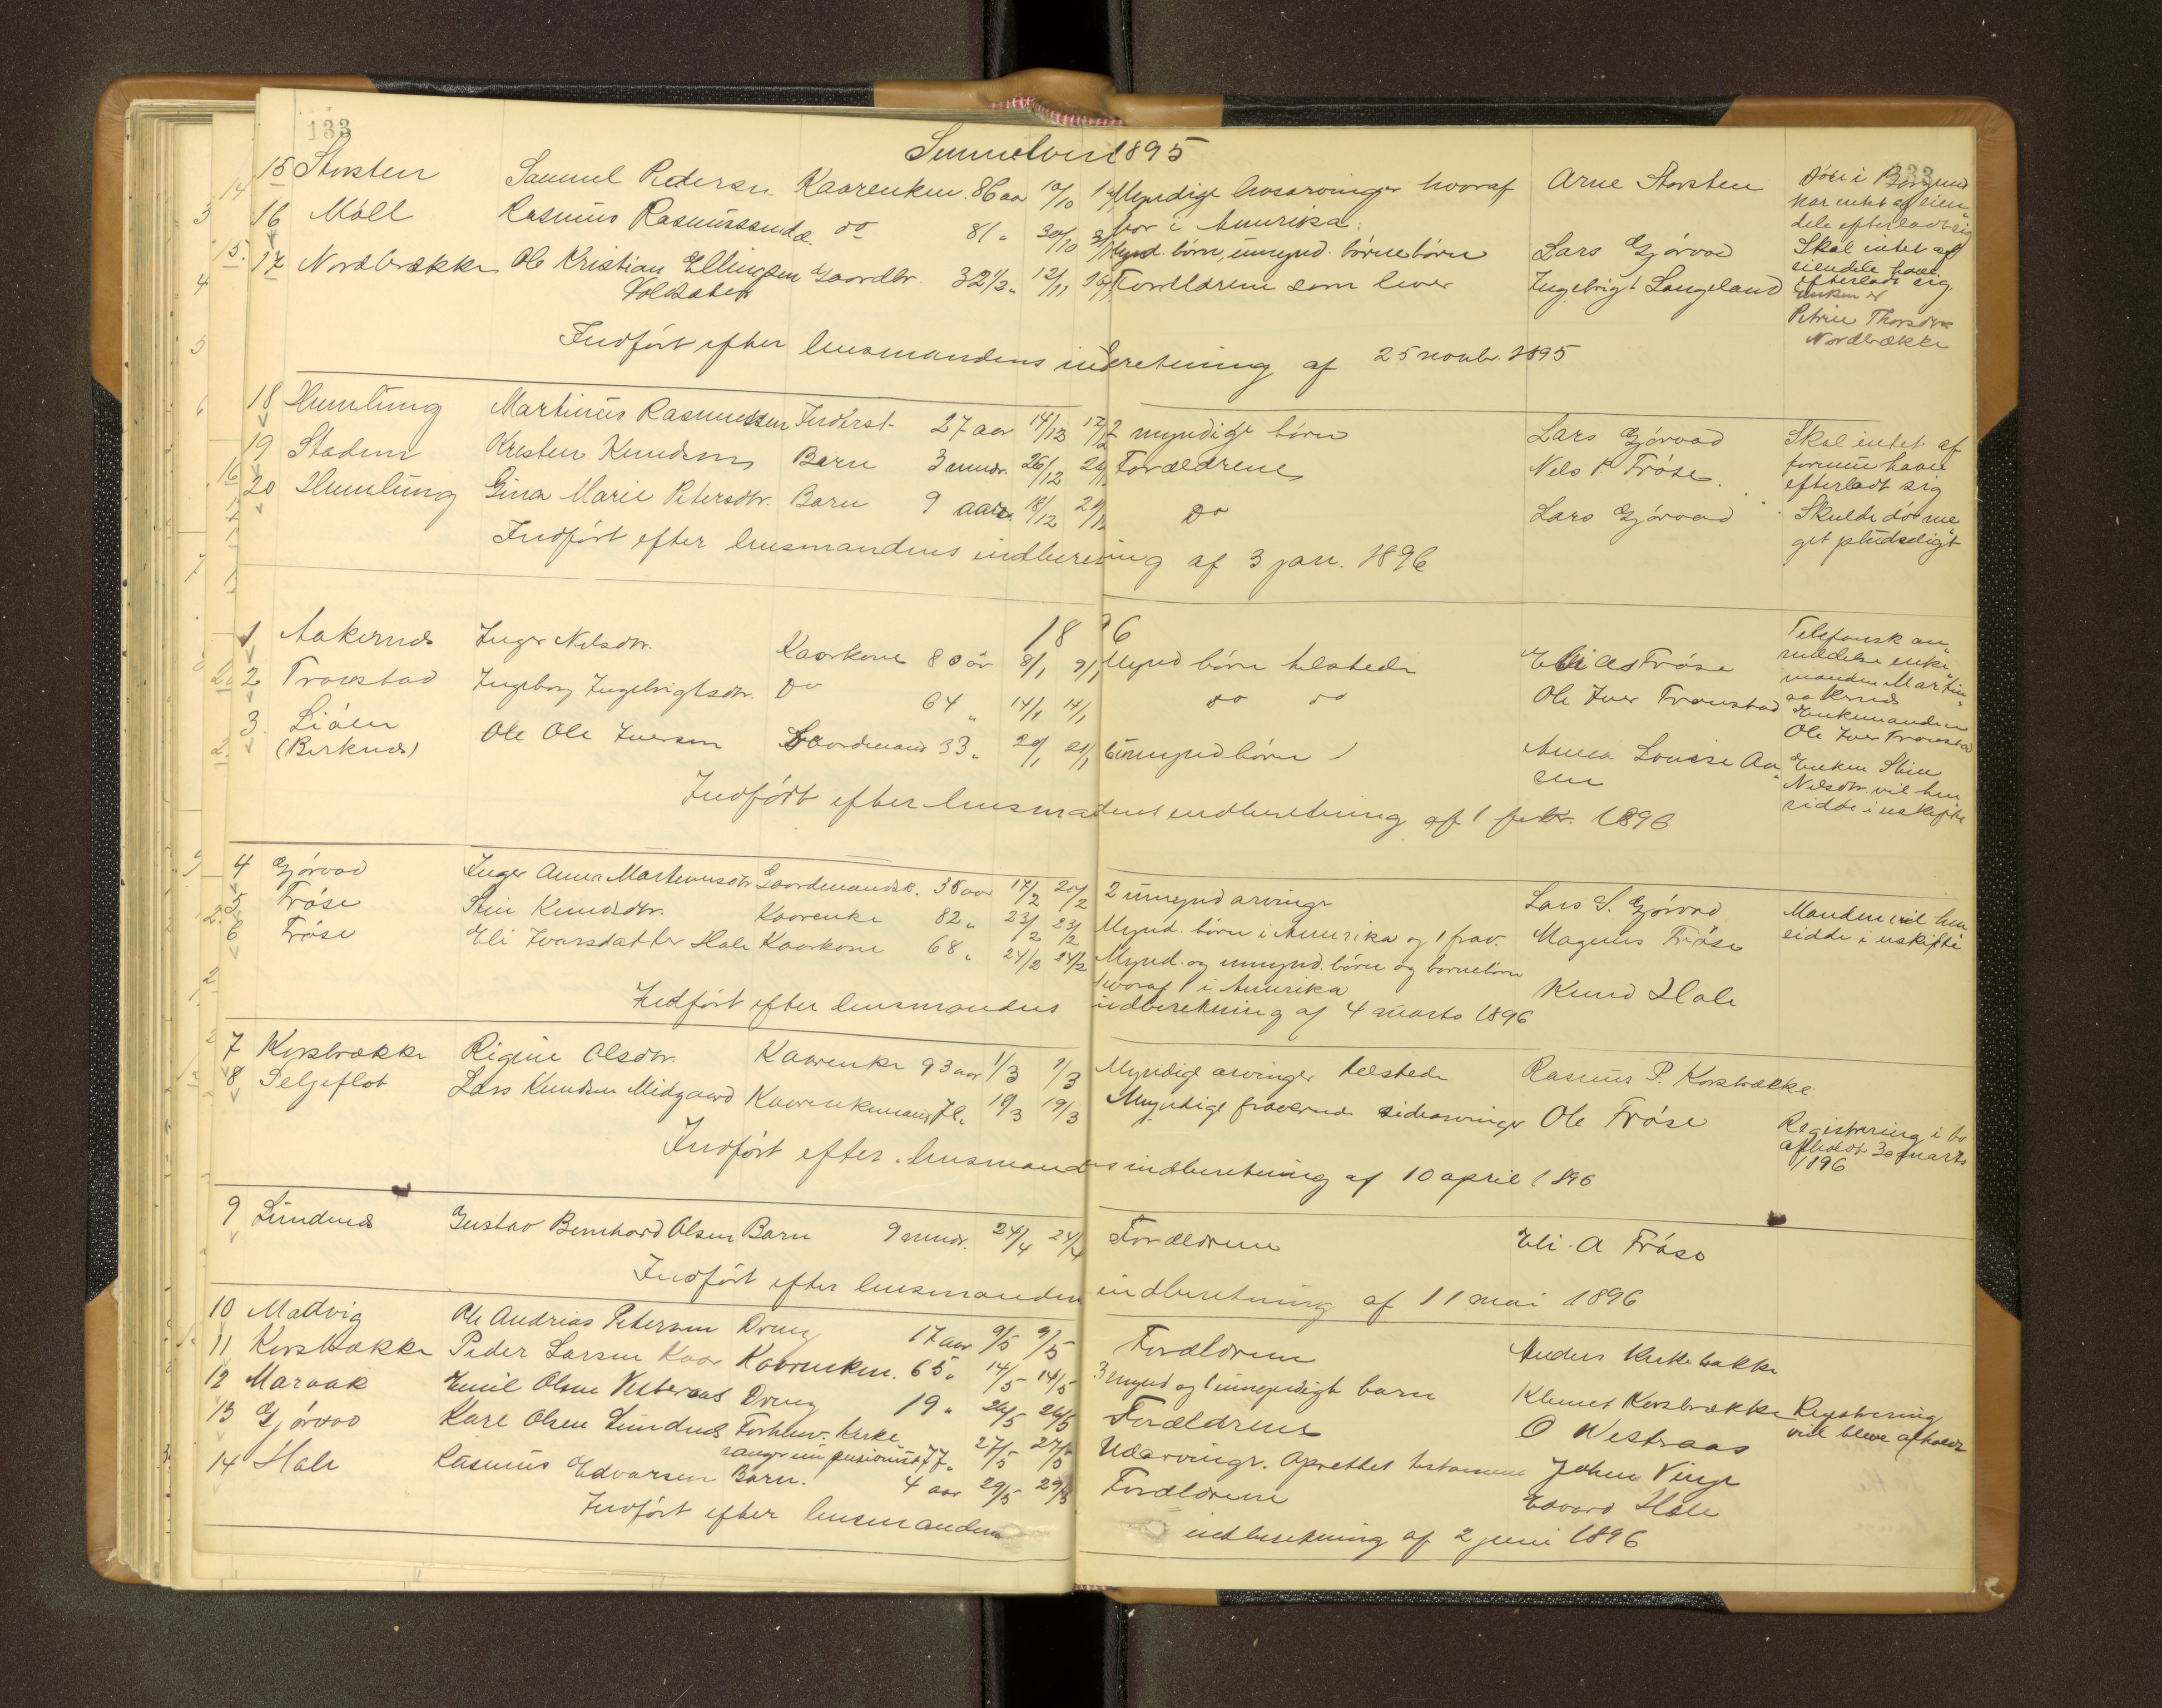 133
Sunnelven 1895
15 Storsten Samuel Pedersen Kaarenkem. 86 aar 10/10 Myndige livsarvinger hvoraf Arne Storsten Döde i Borgund
har intet af eien
dele efterladt sig
bor i Amerika.
16 Moll Rasmus Rasmussen do 81 " 30/10 Mynd. börn, umynd. börnebörn Lars Gjörvad Skal intet af
eiendele have
efterladt sig.
17 Nordbrække Ole Kristian Ellingsen Gaardbr. 32 1/2 " 12/11 Forældrene som lever Ingebrigt Langeland Enken er
Petrine Thorsdtr
Nordbrække
Voldsæter
Indfört efter lensmandens indberetning af 25 novbr. 1895
18 Humlung Martinus Rasmussen Inderst 27 aar 14/12 17/12 2 myndige börn Lars Gjörvad Skal intet af
formue have
efterladt sig
19 Stadem Kresten Knudsen Barn 3 mndr. 26/12 Forældrene Nels P. Fröse.
20 Humlung Gina Marie Petersdtr. Barn 9 aar 18/12 do Lars Gjörvad Skulde dö me
get pludseligt
Indfört efter lensmandens indberetning af 3 jan. 1896
1896
1 Aakernes Inger Nelsdtr. Kaarkone 80 år 8/1 9/1 Mynd. börn tilstede Eli As Fröse Telefonisk an
meldelse enke
manden Martin
Aakernes
2 Tronstad Ingeborg Ingebrigtsdtr. do 64 " 14/1 14/1 do do Ole Iver Tronstad Enkemanden
Ole Iver Tronstad
3 Liöen Ole Ole Iversen Gaardmand 33 " 20/1 21/1 6 umynd börn Anna Louise Aa
sen Enken Stine
Nelsdtr. vil hen
sidde i uskiftet
(Berknes)
Indfört efter lensmandens indberetning af 1 febr. 1896
4 Gjörvad Inger Anna Martinusdtr Gaardmandsk. 38 aar 17/2 20/2 2 umynd arvinger Lars S. Gjörvad Manden vil hen
sidde i uskifte
5 Fröse Stine Knudsdtr. Kaarenke 82 " 23/2 23/2 Mynd. börn i Amerika og 1 frav. Magnus Fröse
6 Fröse Eli Ivarsdatter Hole Kaarkone 68 " 24/2 24/2 Mynd. og umynd. börn og börnebörn
hvoraf 1 i Amerika Knud Hole
Indfört efter lensmandens indberetning af 4 marts 1896
7 Korsbrække Rigine Olsdtr. Kaarenke 93 aar 1/3 1/3 Myndige arvinger tilstede Rasmus P. Korsbrække
8 Seljeflot Lars Knudsen Midgaard Kaarenkemand 72 " 19/3 19/3 Myndige fraværend sidearvinger Ole Fröse Registrering i bo
afholdt 30 marts
1896
Indfört efter lensmandens indberetning af 10 april 1896
9 Lundenes Gustav Bernhard Olsen Barn 9 mndr. 24/4 24/4 Forældrene Eli A Fröse
Indfört efter lensmandens indberetning af 11 mai 1896
10 Madvig Ole Andrias Petersen Dreng 17 aar 9/5 9/5 Forældrene Anders Kirkebakke
11 Korsbrække Peder Larsen Kaar Kaarenkem. 65 " 14/5 14/5 3 mynd og 1 umyndigt barn Klemet Korsbrække Registrering
vil blive afholdt
12 Maraak Emil Olsen Vesteraas Dreng 19 " 26/5 26/5 Forældrene O Westraas
13 Gjörvad Kare Olsen Lundenes Forhenv. Kirke
sanger nu pensionist 77 " 27/5 27/5 Udarvinger. Oprettet testamente John Vinje
14 Hole Rasmus Edvarsen Barn. 4 aar 29/5 29/5 Forældrene Edvard Hole
Indfört efter lensmandens indberetning af 2 juni 1896